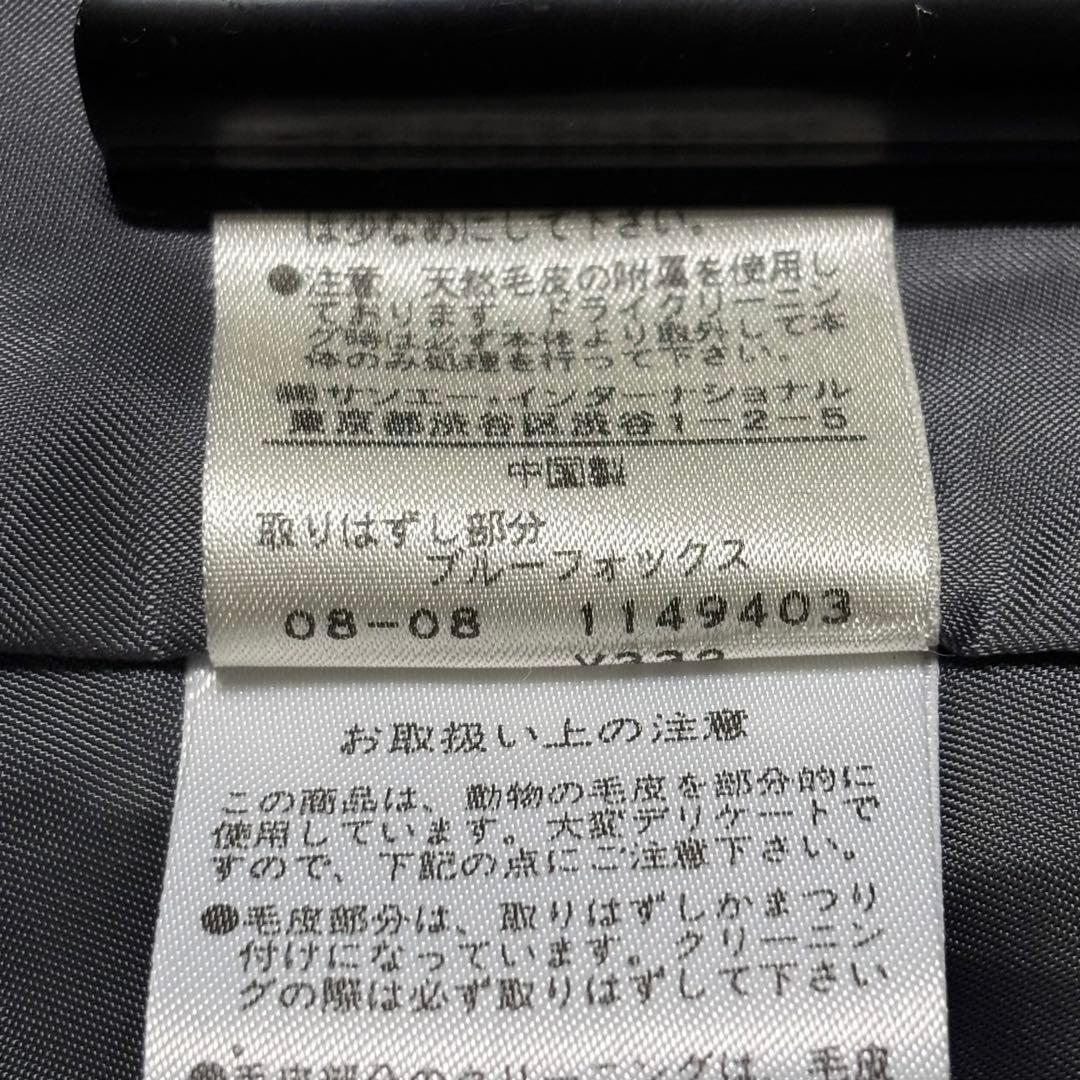 は少なめにして下さい。
●注意　天然毛皮の附属を使用し
ております。ドライクリーニン
グ時は必ず本体より取外して本
体のみ処理を行って下さい。
㈱サンエー・インターナショナル
東京都渋谷区渋谷1-2-5
中国製
取りはずし部分
ブルーフォックス
08-08　1149403
お取扱い上の注意
この商品は、動物の毛皮を部分的に
使用しています。大変デリケートで
すので、下記の点にご注意下さい。
●毛皮部分は、取りはずしかまつり
付けになっています。クリーニン
グの際は必ず取りはずして下さい
●毛皮部分のクリーニングは、毛皮